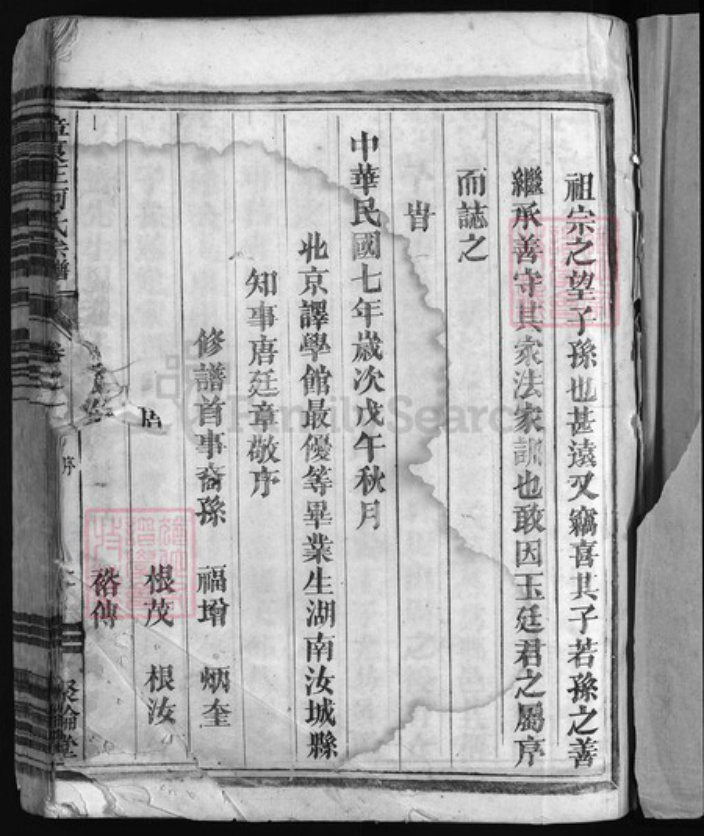 祖宗之望子孫也甚遠又竊喜其子若孫之善
繼承善守其家法家訓也敢因玉廷君之屬序
而誌之
旹
中華民國七年歲次戊午秋月
北京譯學館最優等畢業生湖南汝城縣
知事唐廷章敬序
修譜首事裔孫 福增 炳奎
根茂 根汝
裕傳
氏宗譜
序
倫堂
FamilySearch